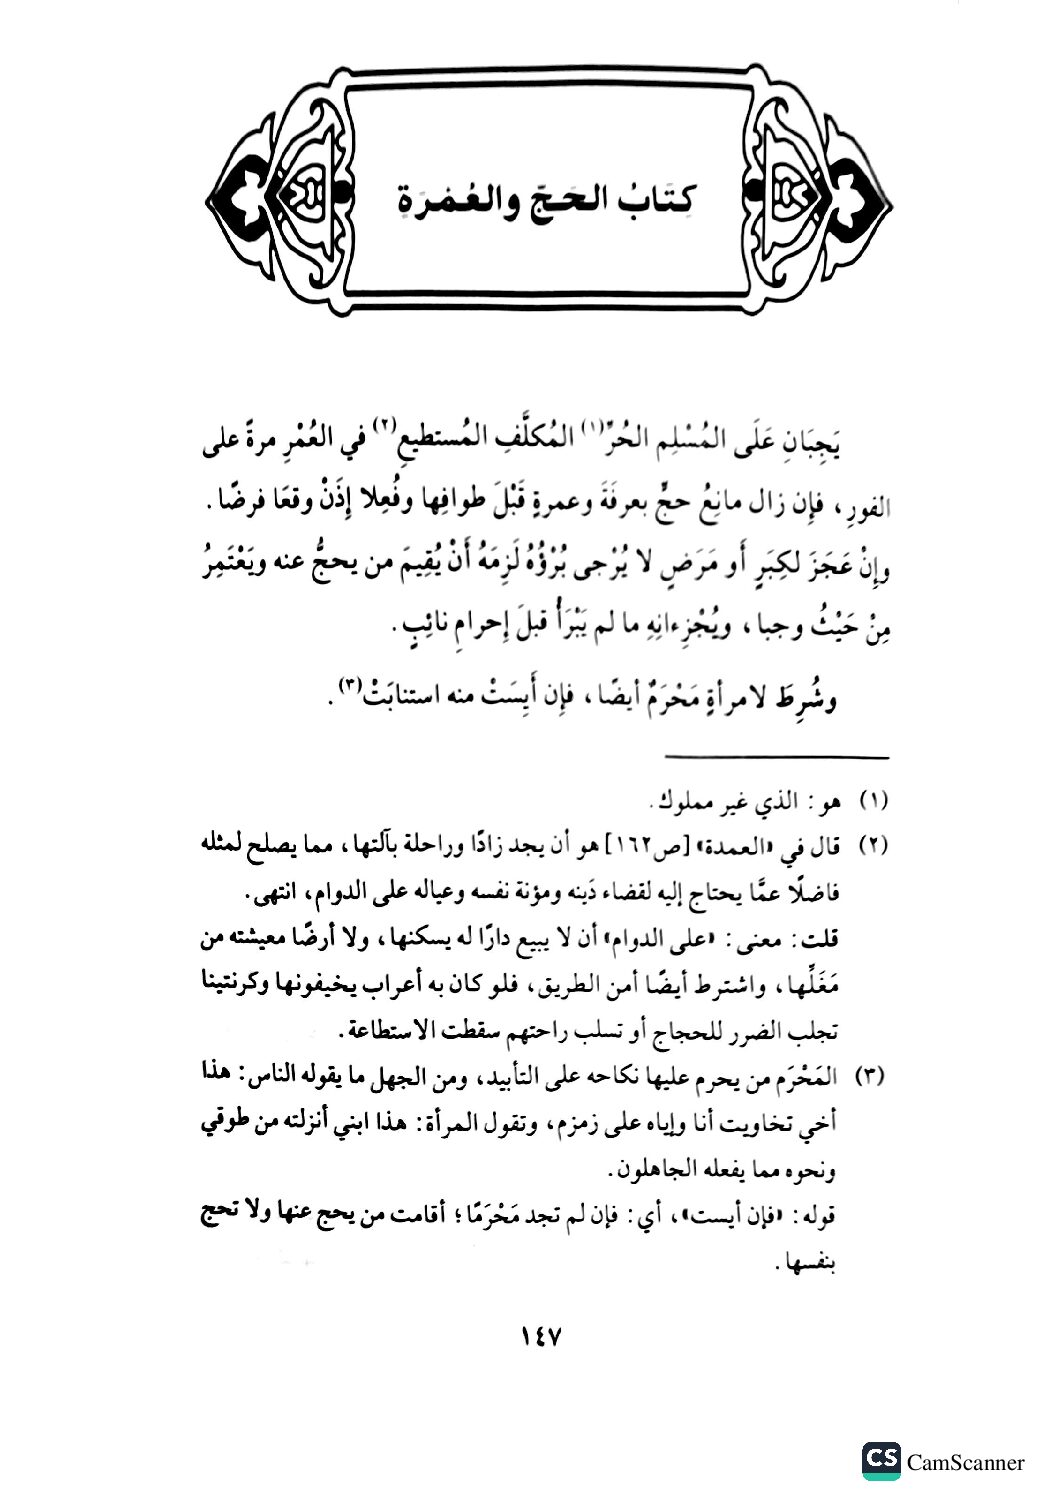 كِتَابُ الحَجّ والعُمْرَةِ
يَجِبَانِ عَلَى المُسْلِمِ الحُرِّ(١) المُكلَّفِ المُستطيعِ(٢) في العُمْرِ مرةً على
الفورِ، فإن زال مانِعُ حجٍّ بعرفَةَ وعمرةٍ قَبْلَ طوافِها وفُعِلا إِذَنْ وقعَا فرضًا.
وإنْ عَجَزَ لكِبَرٍ أو مَرَضٍ لا يُرْجى بُرْؤُهُ لَزِمَهُ أَنْ يُقِيمَ من يحجُّ عنه ويَعْتَمِرُ
مِنْ حَيْثُ وجبا، ويُجْزِءانِهِ ما لم يَبْرَأْ قبلَ إحرامِ نائِبٍ.
وشُرِطَ لامرأةٍ مَحْرَمٌ أيضًا، فإن أَيِسَتْ منه استنابَتْ(٣).
(١) هو: الذي غير مملوك.
(٢) قال في «العمدة» [ص١٦٢] هو أن يجد زادًا وراحلة بآلتها، مما يصلح لمثله
فاضلًا عمَّا يحتاج إليه لقضاء دَينه ومؤنة نفسه وعياله على الدوام، انتهى.
قلت: معنى: «على الدوام» أن لا يبيع دارًا له يسكنها، ولا أرضًا معيشته من
مَغَلِّها، واشترط أيضًا أمن الطريق، فلو كان به أعراب يخيفونها وكرنتينا
تجلب الضرر للحجاج أو تسلب راحتهم سقطت الاستطاعة.
(٣) المَحْرَم من يحرم عليها نكاحه على التأبيد، ومن الجهل ما يقوله الناس: هذا
أخي تخاويت أنا وإياه على زمزم، وتقول المرأة: هذا ابني أنزلته من طوقي
ونحوه مما يفعله الجاهلون.
قوله: «فإن أيست»، أي: فإن لم تجد مَحْرَمًا؛ أقامت من يحج عنها ولا تحج
بنفسها.
١٤٧
CS CamScanner